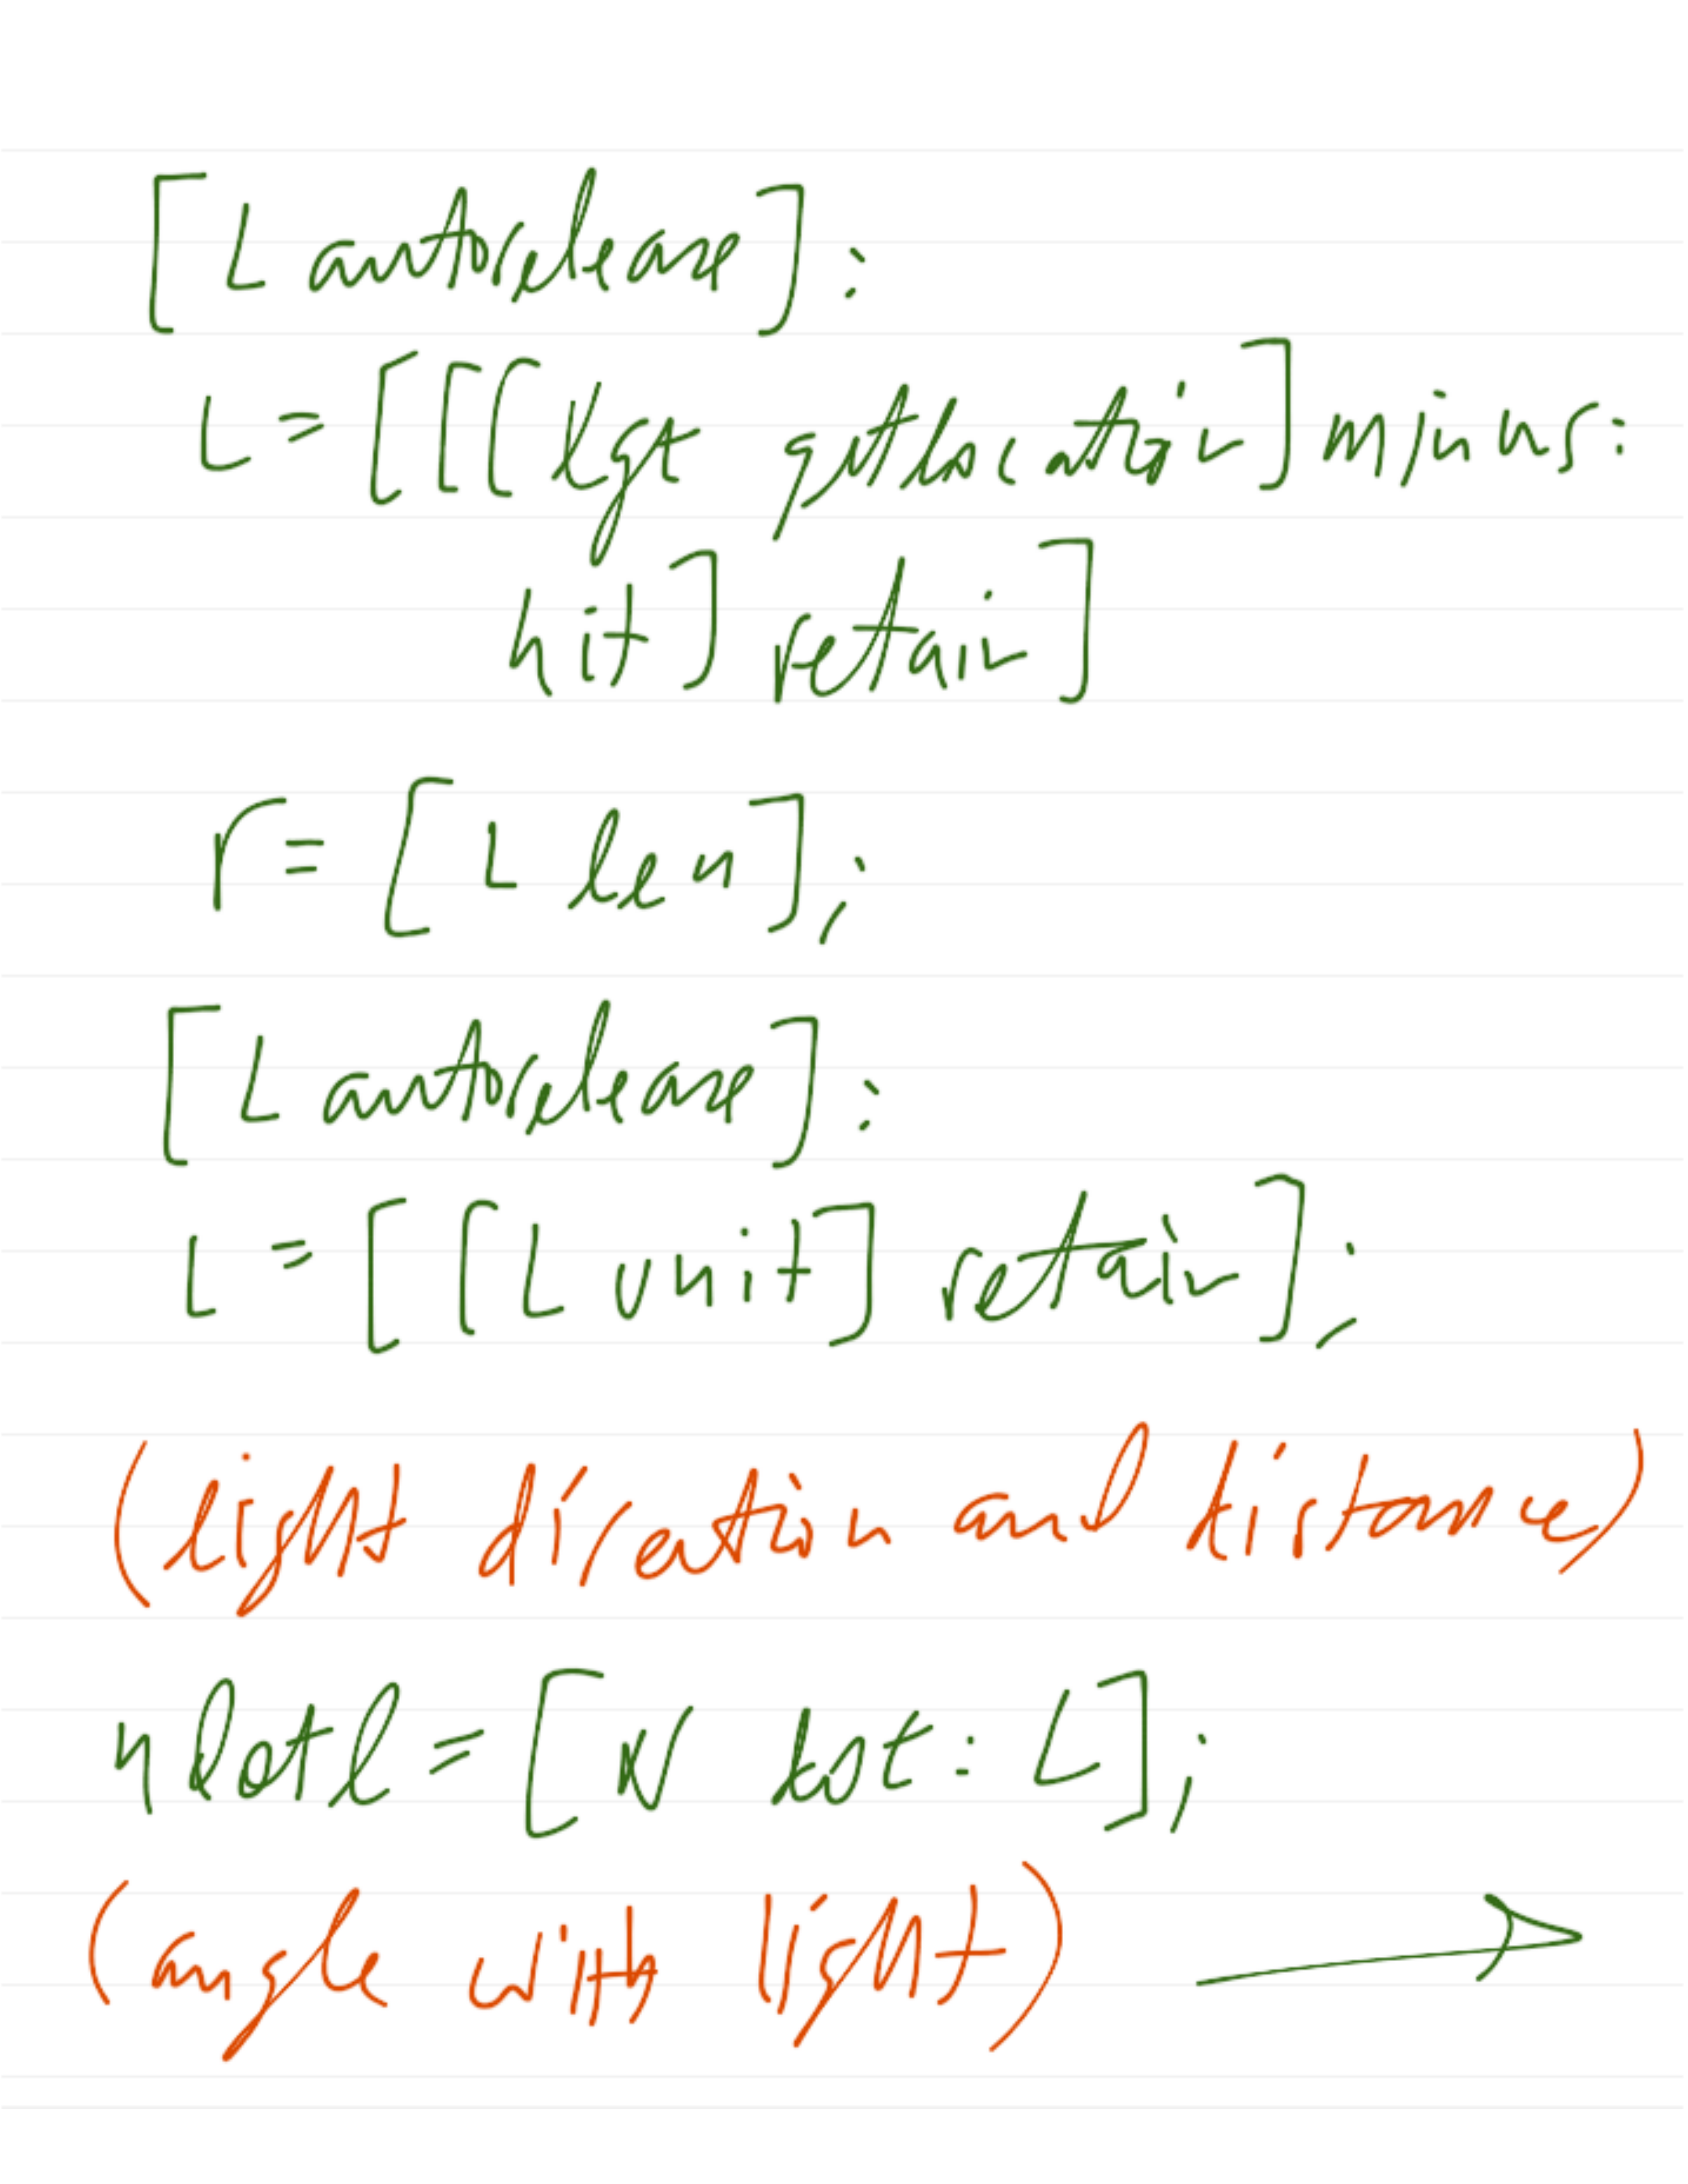 [L autorelease]:
L = [[[lgt getLocation] minus:
hit] retain]
r = [L len];
[L autorelease]:
L = [[L unit] retain];
(light direction and distance)
ndotl = [N dot: L];
(angle with light)